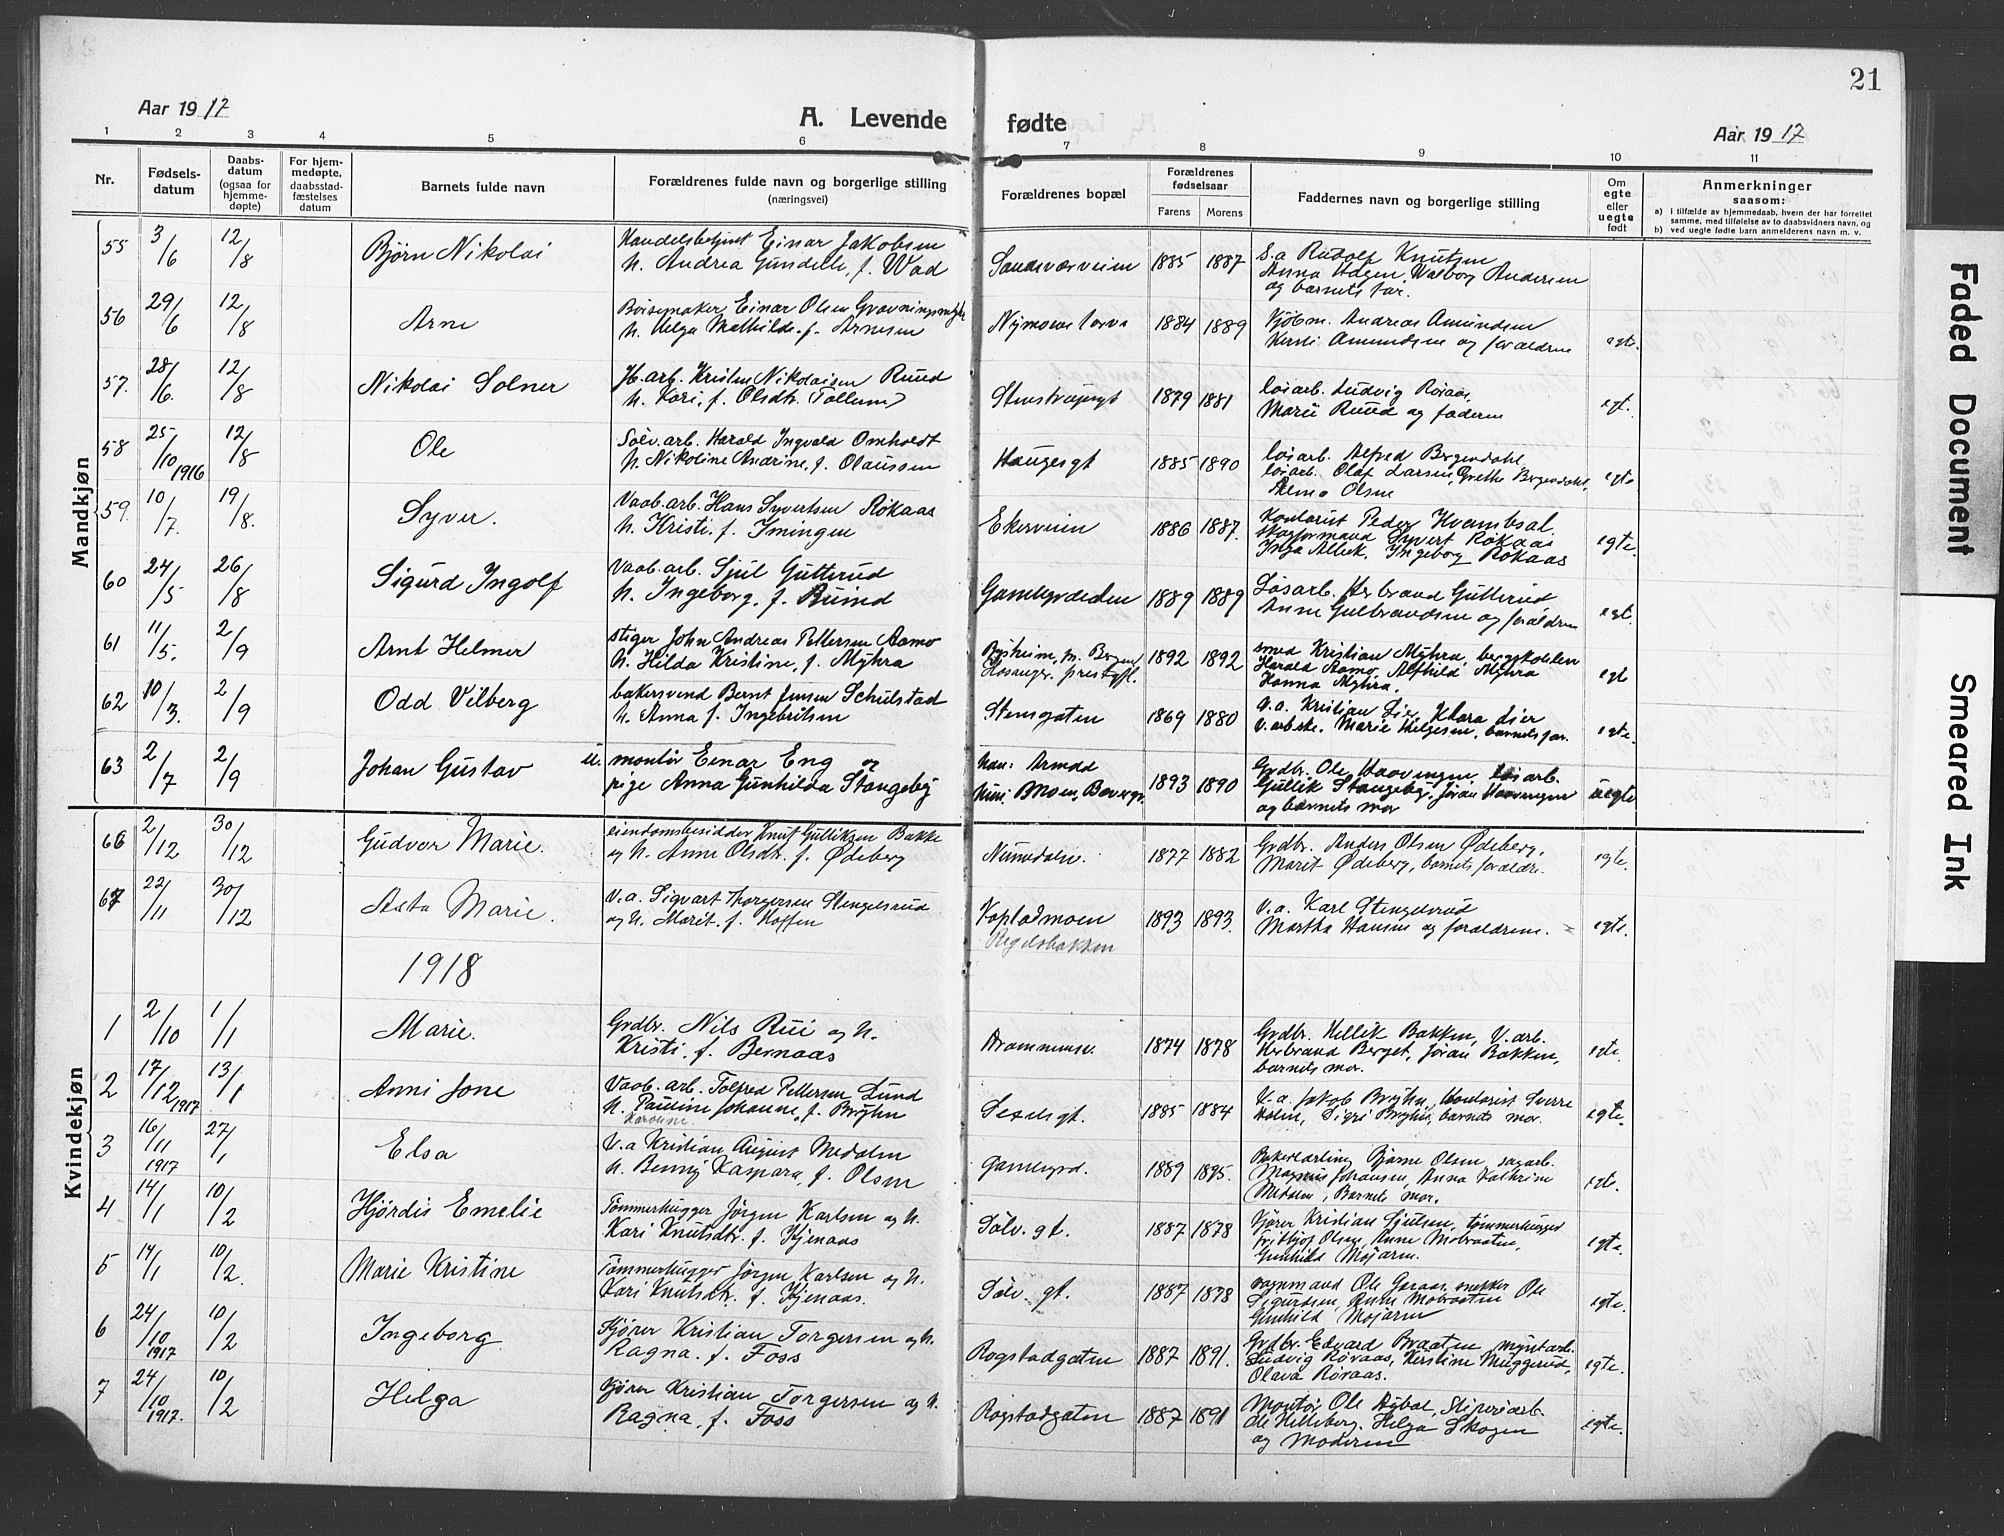 21
Aar 1917
A. Levende fødte
Aar 1917
1 2 3 4 5 6 7 8 9 10 11
Nr.
Fødsels-
datum
Daabs-
datum
(ogsaa for
hjemme-
døpte)
For hjem-
medøpte,
daabsstad-
fæstelses
datum
Barnets fulde navn
Forældrenes fulde navn og borgerlige stilling
(næringsvei)
Forældrenes bopæl
Forældrenes
fødselsaar
Farens Morens
Faddernes navn og borgerlige stilling
Om
egte
eller
uegte
født
Anmerkninger
saasom:
a) i tilfælde av hjemmedaab, hvem der har forrettet
samme, med tilføielse av to daabsvidners navn, og
b) ved uegte fødte barn anmelderens navn m. v.
Mandkjøn
55 3/6 12/8 Bjørn Nikolai
Einar Jakobsen
h. Andrea Gundelle, f. Wad
Sandsværveien 1885 1887
S.a Rudolf Knutsen
Anna Hagen, Walborg Andersen
og barnets far.
56 29/6 12/8 Arne
Børsemaker Einar Olsen
h. Helga Mathilde f. Arnesen
1884 1889
Kjøbm. Andreas Amundsen
Amundsen og forældrene
egte.
57. 28/6. 12/8 Nikolai Solner
Jb. arb. Kristen Nikolaisen Ruud
h. Kari, f. Olsdtr.
1879 1881
løsarb. Ludvig Røraas,
Marie Ruud og faderen
egt.
58 25/10 1916 12/8 Ole
Sølv. arb. Harald Ingvald Omholdt
h. Nikoline Andrine, f. Olaussen
Haugesgt 1885 1890
løsarb. Alfred Bergendahl
løsarb. Olaf Larsen, Grethe Bergendahl,
Alma Olsen
egte
59. 10/7. 19/8. Syver.
Vaab. arb. Hans Syvertsen Røkaas
h. Kristi. f. Imingen
Ekerveien 1886 1887.
Kontorist Peder Kvambsal
skogformand Syvert Røkaas
Inga Albek, Ingeborg Røkaas
egte.
60 24/5 26/8 Sigurd Ingolf
Vaab. arb. Sjul Gutterud
h. Ingeborg, f. Ruind
Gamlegrdeden 1889 1889
Løsarb. Herbrand Gutterud
Anne Gulbrandsen og forældrene
egt.
61 11/5. 2/9 Arnt Helmer
stiger John Andreas Pettersen Aamo
h. Hilda Kristine, f. Myhra
1892 1892
smed Kristian Myhra,
Harald Aamo, Alfhild Myhra
Hanna Myhra.
egt
62 10/3. 2/9 Odd Vilberg
bakersvend Bernt Jensen Schulstad
h. Anna f. Ingebritsen
Stensgaten 1869 1880
V.a. Kristian Lier, Klara Lier
v. arbske. Marie Helgesen, barnets far.
egte.
63 2/7 2/9 Johan Gustav u.
montør Einar Eng og
pige Anna Gunhilda Stangeby
han: Armdd
hun: Moen, 1893 1890
Grdbr. Ole Haavengen, løsarb.
Gullik Stangeby, Jøran Haavengen
og barnets mor
uegte
Kvindekjøn
66 2/12 30/12 Gudvor Marie.
eiendomsbesidder Knut Gulliksen Bakke
og h. Anne Olsdtr. f. Ødeberg
Numedalsv. 1877 1882
Grdbr. Anders Olsen Ødeberg,
Marit Ødeberg, barnets forældre.
egte.
67 22/11 30/12 Asta Marie.
V.a. Sigvart Thorgersen Stengelsrud
og h. Marit. f. Hoffen
Kopladmoen
Regelsbakken
1893 1893.
V.a. Karl Stengelsrud
Martha Hansen og forældrene.
egte.
1918
1 2/10 1/1 Marie.
Grdbr. Nils Rui og h.
Kristi. f. Bernaas
Drammensv. 1874 1878
Grdbr. Hellik Bakken, V. arb.
Herbrand Berget, Jøran Bakken,
barnets mor.
egte.
2 17/12 1917 13/1 Anni Jone
Vaab. arb. Tolfred Pettersen Lund
h. Pauline Johanne, f. Bryhn
1885 1884
V.a. Jakob Bryhn, Kontorist Sverre
Holm, Sigri Bryhn, barnets mor.
egte.
3 16/11 1917 27/1 Elsa
V.a Kristian August Medalen
h. Benny Kaspara, f. Olsen
Gamlegrd. 1889 1895.
Bakerlærling Bjarne Olsen, sagarb.
Magnus Johansen, Anna Kathrine
Medalen, Barnets mor.
egte.
4 14/1 10/2 Hjørdis Emelie
Tømmerhugger Jørgen Karlsen og h.
Kari Knutsdtr. f. Kjenaas
Sølv. gt. 1887 1878
Kjører Kristian Sjulsen, tømmerhugger
Fritjof Olsen, Anne Mobraaten,
Gunhild Mojarm.
egte
5 14/1 10/2. Marie Kristine
Tømmerhugger Jørgen Karlsen og h.
Kari Knutsdtr. f. Kjenaas.
Sølv. gt. 1887 1878
vognmand Ole Garaas, snekker Ole
Sigurdsen, Anne Mobraaten
Gunhild Mojarm
egte.
6 24/10 1917 10/2 Ingeborg
Kjører Kristian Torgersen og h.
Ragna. f. Foss
Rogstadgaten 1887 1891.
Grdbr. Edvard Braaten, myntarb.
Ludvig Røraas, Kerstine Muggerud,
Olava Røraas.
egte.
7 24/10 1917. 10/2 Helga
Kjører Kristian Torgersen og h.
Ragna, f. Foss
Rogstadgaten 1887 1891
Montør Ole Aabal, Sliperiarb.
Ole Helleberg, Helga Skogen
og Moderen
egte.
Faded Document
Smeared Ink